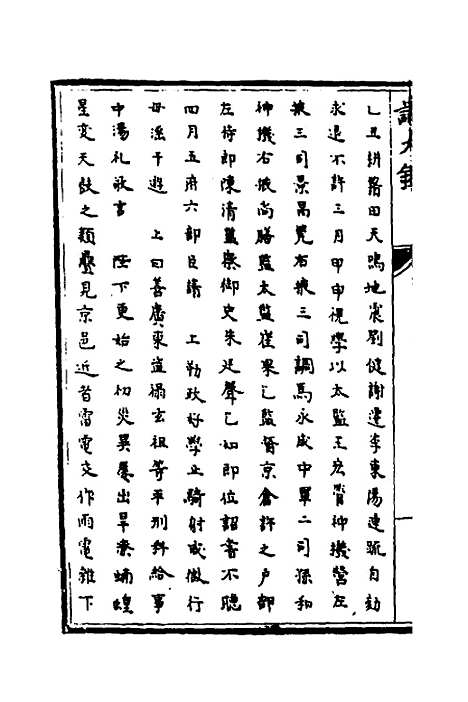 乙丑耕籍田天鳴地震劉健謝遷李東陽連疏自劾
求退不許三月甲申視學以太監王宏管神機營左
掖三司景昌管右掖三司調馬永成中軍二司孫和
神機右掖尚膳監太監崔杲乞監督京倉許之戶部
左侍郎陳清監察御史朱廷聲乞如即位詔書不聽
四月五府六部臣請 上勤政好學止騎射戒微行
毋淫于遊 上曰善廣東盜禍玄祖等平刑科給事
中湯礼敬言 陛下更始之初災異屢出旱潦蝻蝗
星変天鼓之類疊見京邑近者雷電交作雨雹雜下